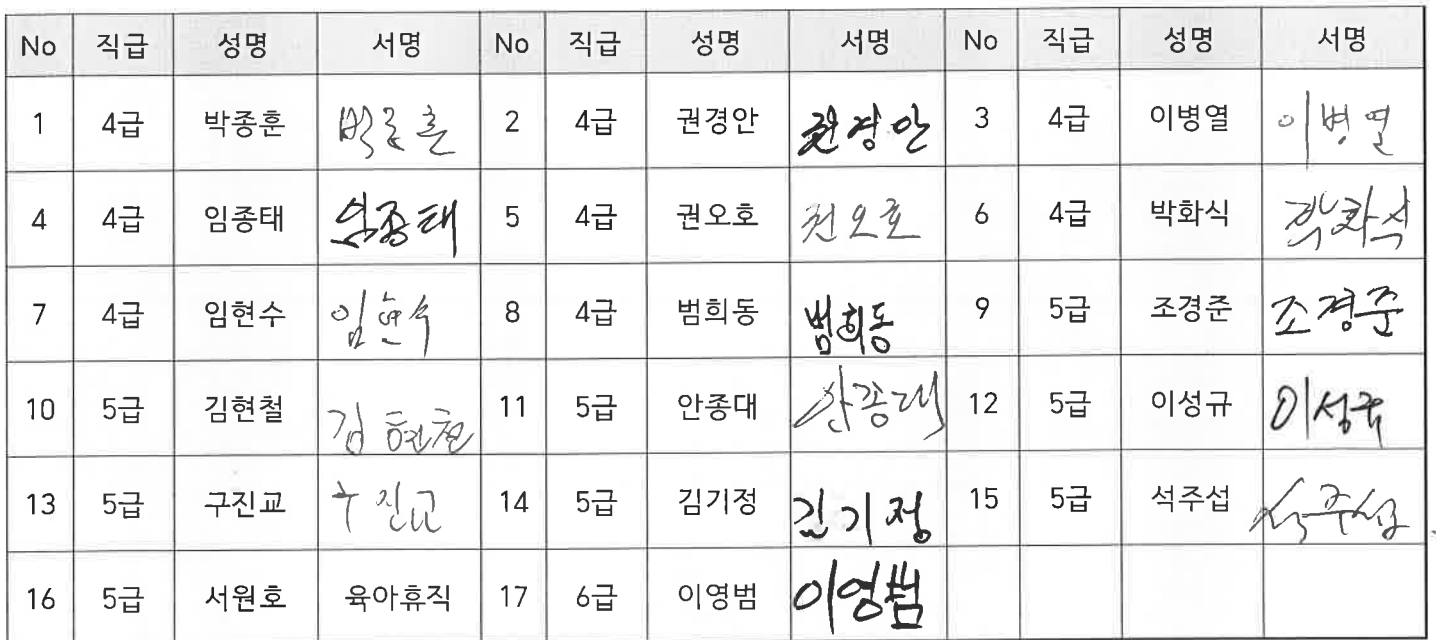 No 직급 성명 서명 No 직급 성명 서명 No 직급 성명 서명
1 4급 박종훈 박종훈 2 4급 권경안 권경안 3 4급 이병열 이병열
4 4급 임종태 임종태 5 4급 권오호 권오호 6 4급 박화식 박화식
7 4급 임현수 임현수 8 4급 범희동 범희동 9 5급 조경준 조경준
10 5급 김현철 김현철 11 5급 안종대 안종대 12 5급 이성규 이성규
13 5급 구진교 구진교 14 5급 김기정 김기정 15 5급 석주섭 석주섭
16 5급 서원호 육아휴직 17 6급 이영범 이영범